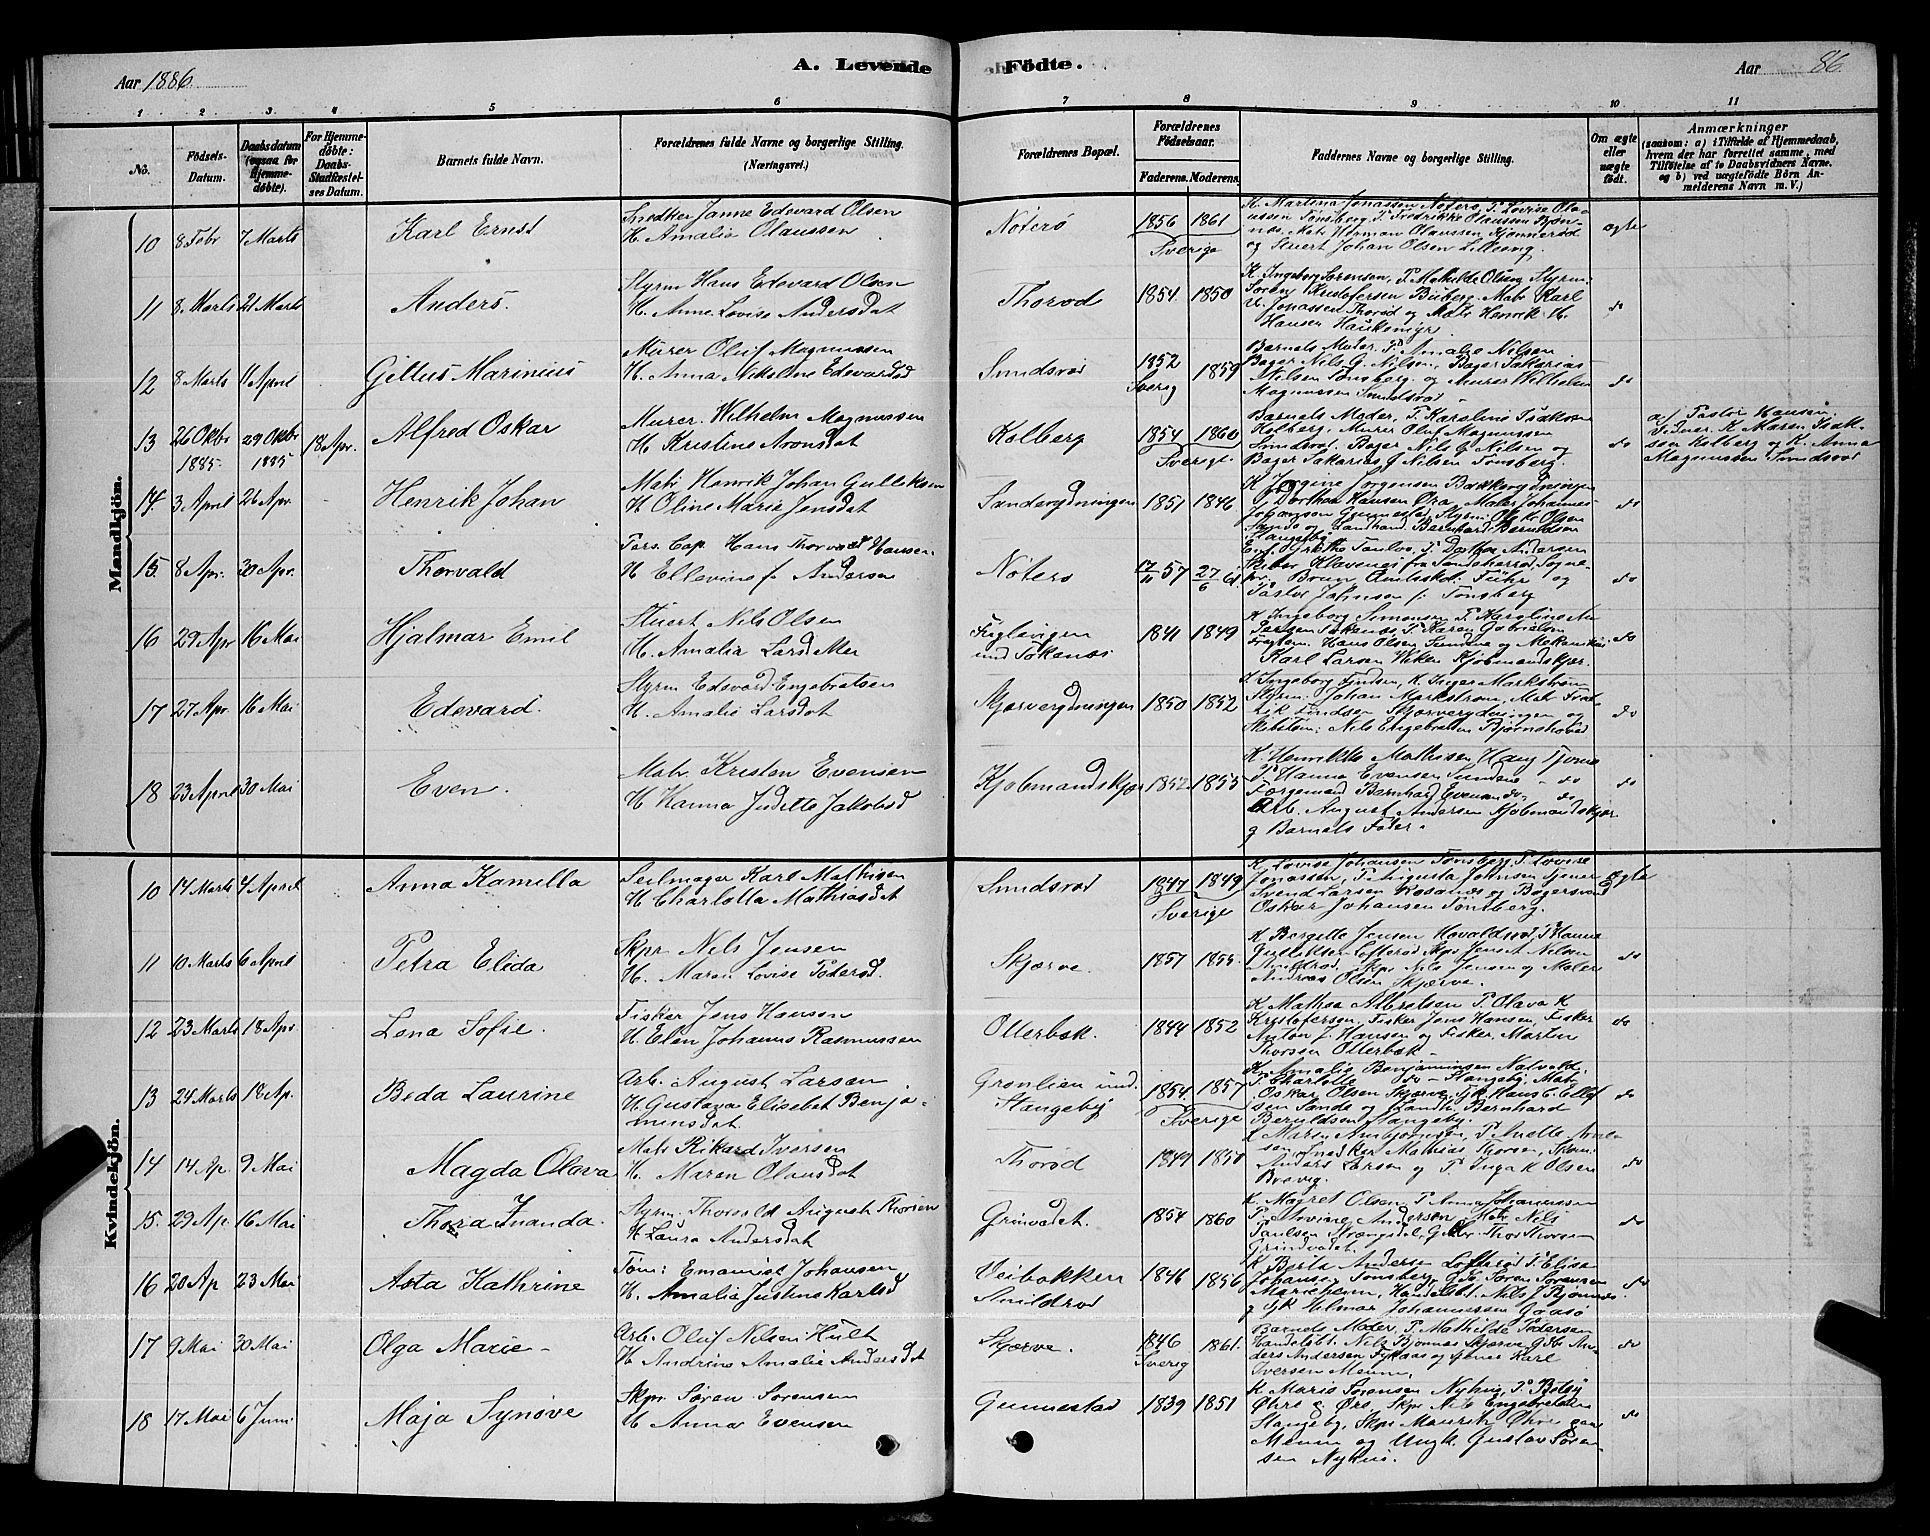 Aar 1886.
A. Levende Fødte.
Aar 86.
1 2 3 4 5 6 7 8 9 10 11
No. Fødsels-Datum. Daabsdatum (ogsaa for Hjemme-døbte). For Hjemme-døbte: Daabs-Stadfæstel-ses Datum. Barnets fulde Navn. Forældrenes fulde Navne og borgerlige Stilling. (Næringsvei.) Forældrenes Bopæl. Forældrenes Fødselsaar. Faderens. Moderens. Faddernes Navne og borgerlige Stilling. Om ægte eller uægte født. Anmærkninger (saasom: a) i Tilfælde af Hjemmedaab, hvem der har forrettet samme, med Tilføielse af to Daabsvidners Navne. og b) ved uægtefødte Børn An-melderens Navn m. V.)
Mandkjön.
10 8 Febr 7 Marts Karl Ernst Snedker Janne Edevard Olsen
H. Amalia Olaussen Nøterø 1856 1861 Sverige
K. Martina Jonassen Nøterø, P. Lovise Ola-
ussen Tønsberg P. Fredrikke Olaussen Bjørn-
næs. Mat. Herman Olaussen
og Stuert Johan Olsen ægte
11 8 Marts 21 Marts Anders. Styrm Hans Edevard Olsen
H. Anne Lovise Andersdat Thorød 1854. 1850
K. Ingeborg Sørensen, P. Mathilde Olsen, Styrm:
Søren Kristofersen Buberg. Matr Karl
Jonassen Thorød og Matr Henrik M.
Hansen do
12 8 Marts 11 April Gettus Marinius Murer Oluf Magnussen
H. Anna Nikoline Edevardsd Smidsrød 1852 Sverig 1859
Barnets Moder. P. Amalie Nilsen
Bager Nils G. Nilsen, Bager Sakarias
Nilsen Tønsberg. og Murer Wilhelm
Magnussen Smidsrød do
13 26 Oktbr 1885. 29 Oktbr 1885 18 Apr. Alfred Oskar Murer. Wilhelm Magnussen
H. Kristine Aronsdat Kolberg 1854 1860 Sverige.
Barnets Moder, P. Karoline Isaksen
Kolberg. Murer Oluf Magnussen
Smidsrød. Bager Nils G Nilsen og
Bager Sakarias G Nilsen Tønsberg. do
af Pastor Hansen.
Vidner. K Maren Isak-
sen Kolberg og K. Anna
Magnussen Smidsrød
14 3 April 26 Apr. Henrik Johan Matr Henrik Johan Gulliksen
H Oline Marie Jensdat Sanderydningen 1851 1846
K Jørgine Jørgensen Bakkerydningen
P Dorthea Hansen Øra, Matr Johannes
Johansen Gunnestad, Styrm: Ole K. Olsen
Sande og Landhand. Bernhard Beruldsen
Stangeby do
15. 8 Apr. 30 Apr. Thorvald Førs. Cap. Hans Thorvald Hansen.
H Ellevine f. Andersen Nøterø 17/11 57 27/6 61
P. Dorthea Andersen
Klavenes fra Sandeherred, Sogne-
pr. Bruun Amtsskol. Führ og
Pastor Johnsen fr. Tønsberg do
16 29 Apr 16 Mai Hjalmar Emil Stuert Nils Olsen
H. Amalia Larsdatter Fuglevigen und Tokenæs 1841 1849
K Ingeborg Simonsen, P. Karoline
Larsen Tokenæs, P. Karen Gabrielsen
Hans Olsen Sundene og Mekanikus
Karl Larsen Viken Kjøbmandskjær. do
17 27 Apr. 16 Mai Edevard. Styrm Edevard Engebretsen
H. Amalie Larsdat Skjærverydningen 1850 1852
K. Ingeborg Findsen, K. Inger Markstrøm
Styrm: Johan Markstrøm, Mat Fred-
rik Findsen Skjærverydningen og
Skibstøm: Nils Engebretsen Bjørnehoved do
18 23 April 30 Mai Even. Matr. Kristen Evensen
H Hanna Judette Jakobsd Kjøbmandskjær 1852. 1855
K. Henrikke Mathisen Haug Tjømø
P Hanna Evensen Sundene do
Færgemand Bernhard Evensen do do
Arb. August Andersen Kjøbmandskjær
og Barnets Fader. do
Kvindekjön.
10 14 Marts 4 April Anna Kamilla Seilmager Karl Mathisen
H Charlotta Mathiasdat Smidsrød 1847 1849 Sverige
K Lovise Johansen Tønsberg. P. Lovise
Jonassen, P. Augusta Johnsen, Tjener
Svend Larsen Rosanes og Bagersvend
Oskar Johansen Tønsberg. ægte
11 10 Marts 6 April Petra Elida Skpr. Nils Jensen
H. Maren Lovise Pedersd. Skjærve. 1857 1855.
K Bergitte Jensen Havaldsrød, P Hanna
Gulliksen Lofterød Skpr Jens A Nilsen
Arildrød, Skpr Nils Jensen og Maler
Andreas Olsen Skjærve. do
12 23 Marts 18 Apr Lena Sofie. Fisker Jens Hansen
H. Elen Johanne Rasmussen Otterbæk. 1844 1852
K Mathea Albertsen P. Olava K
Kristofersen, Fisker Jens Hansen, Fisker
Anton J. Hansen og Fisker Martin
Thorsen Otterbæk do
13 24 Marts 18 Ap. Beda Laurine Arb. August Larsen
H Gustava Elisebet Benja-
minsdat. Grønlien und. Stangeby 1854. 1857 Sverige
K. Amalie Benjaminsen Natvald,
P. Charlotte do Stangeby, Mat.
Oskar Olsen Skjærve, Hans C. Ellef-
sen Sande og Landh. Bernhard
Beruldsen Stangeby. do
14 14 Ap. 9 Mai Magda Olava Matr Rikard Iversen
H. Maren Olausdat Thorød 1849 1850
K Maren P. Anette
Snedker Mathias Thorsen, Skom:
Anders Larsen og P Inga K Olsen
Brevig. do
15. 29 Ap. 16 Mai Thora Inanda. Styrm. Thorvald August Thorsen
H Laura Andersdat Grinvedet. 1854 1860
K. Magret Olsen, P Anna Johannesen
P. Andersen Matr Nils
Paulsen Thor Thorsen
Grindvedet. do
16 20 Ap 23 Mai Asta Kathrine Tøm: Emanuel Johansen
H. Amalia Justine Karlsd Veibakken Arildrød 1846 1856
K Berta Andersen Lofterød P. Elise
Johansen Tønsberg, Søren Sørensen
Marieheim, Handelsbt. Nils J. Bjønnes
og Hilmar Johannessen Gaasø do
17 9 Mai 30 Mai Olga Marie Arb. Oluf Nilsen Hult
H Andrine Amalie Andersdat Skjærve. 1846 Sverig 1861.
Barnets Moder. P. Mathilde Pedersen
Handelsbt. Nils Bjønnes Skjærve, An-
ders Andersen og Tjener Karl
Iversen Meum. do
18 17 Mai 6 Juni Maja Synøve Skpr Søren Sørensen
H Anna Evensen Gunnestad 1839 1851
K Marie Sørensen Nyhus, P. Betsy
Øhre og Øre, Skpr Nils Engebretsen
Stangeby, Skpr Maurits Øhre
Meum og Ungk. Gustav Søren-
sen Nyhus. do